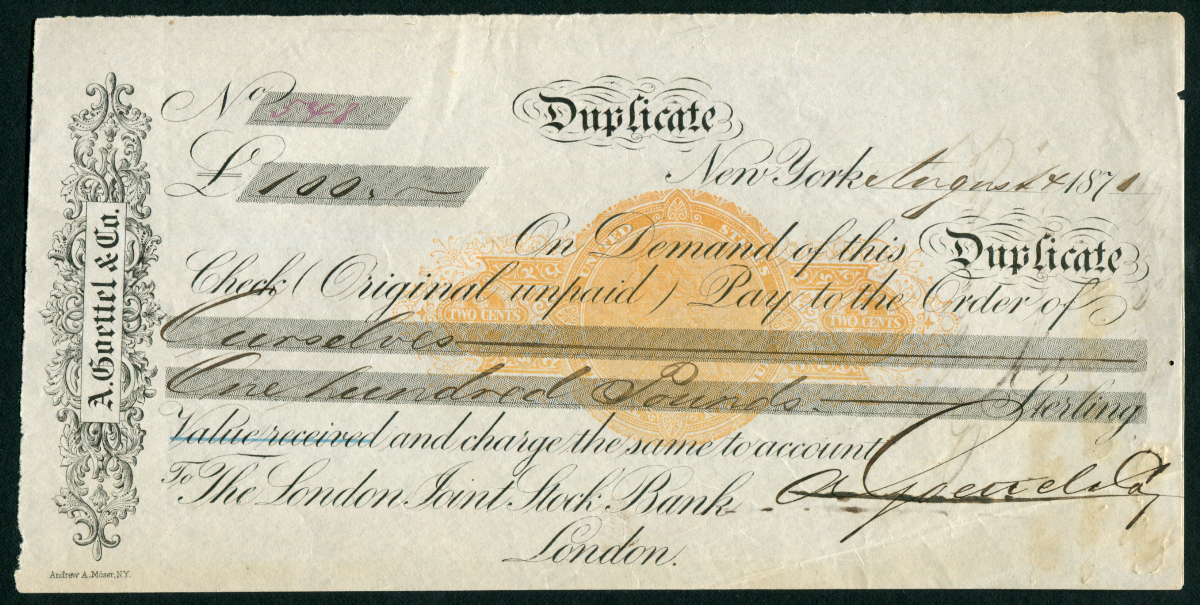 A. Goettel & Co.
No 548
Duplicate
£ 100. —
New York August 4 1871
On Demand of this Duplicate
Check (Original unpaid) Pay to the Order of
Ourselves
One hundred Pounds. Sterling
Value received and charge the same to account
To The London Joint Stock Bank
London.
A. Goettel & Co
UNITED STATES
TWO CENTS TWO CENTS
Andrew A. Moser, N.Y.